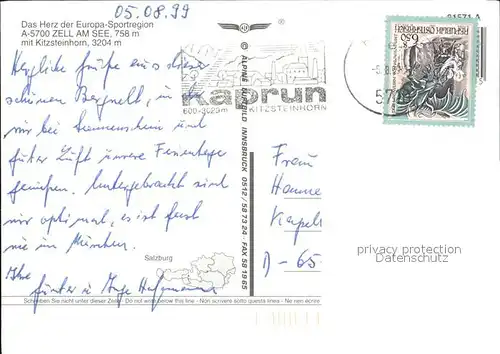 05.08.99
Das Herz der Europa-Sportregion
A-5700 ZELL AM SEE, 758 m
mit Kitzsteinhorn, 3204 m
Herzliche Grüße aus dieser
schönen Bergwelt, in der
wir bei Sonnenschein und
guter Luft unsere Ferientage
genießen. Untergebracht sind
wir optimal, es ist fast
wie in München.
Ihre
Günter u. Inge
Salzburg
Schreiben Sie nicht unter dieser Zeile / Do not write below this line - Non scrivere sotto questa linea - Ne
© ALPINE LUFTBILD INNSBRUCK 0512 / 58 73 24 - FAX 58 19 65
®
Kaprun
600-3029m KITZSTEINHORN
REPUBLIK ÖSTERREICH
6.50
21571 A
Frau
Hanne
Kapell
D-65
privacy protection
Datenschutz